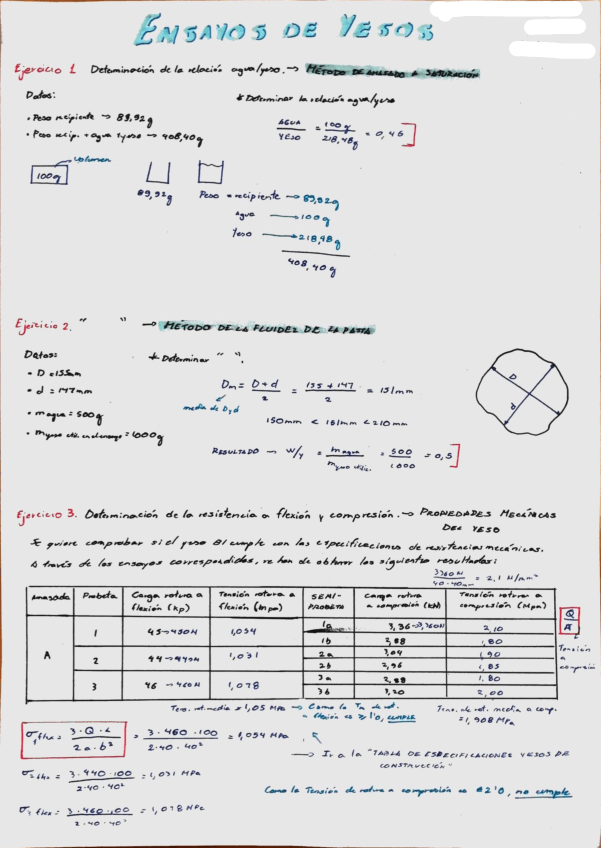 ENSAYOS DE YESOS
Ejercicio 1 Determinación de la relación agua/yeso. → MÉTODO DE AMASADO A SATURACIÓN
Datos: * Determinar la relación agua/yeso
· Peso recipiente → 89,92g
· Peso recip. + agua + yeso → 408,40g
AGUA / YESO = 100g / 218,48g = 0,46
volumen
100g
89,92g Peso = recipiente → 89,92g
Agua → 100g
Yeso → 218,48g
408,40g
Ejercicio 2. " " → MÉTODO DE LA FLUIDEZ DE LA PASTA
Datos: * Determinar " ".
· D = 155mm
· d = 147mm
· m agua = 500g
Dm = D+d / 2 = 155 + 147 / 2 = 151mm
media de D y d
150mm < 151mm < 210mm
RESULTADO → W/Y = m agua / = 500 / 1000 = 0,5
D
d
Ejercicio 3. Determinación de la resistencia a flexión y compresión. → PROPIEDADES MECÁNICAS
DEL YESO
Se quiere comprobar si el yeso B1 cumple con las especificaciones de resistencias mecánicas.
A través de los ensayos correspondidos, se han de obtener los siguientes resultados:
3360N / 40·40mm² = 2,1 N/mm²
Amasada Probeta Carga rotura a flexión (kp) Tensión rotura a flexión (Mpa) SEMI-PROBETA Carga rotura a compresión (kN) Tensión rotura a compresión (Mpa)
A 1 45→450N 1,054 1a 3,36→3360N 2,10
1b 2,88 1,80
2 44→440N 1,031 2a 3,04 1,90
2b 2,96 1,85
3 46→460N 1,078 3a 2,88 1,80
3b 3,20 2,00
Q / A
Tensión
a
compresión
Tens. rot. media = 1,05 MPa → Como la Tn de rot.
a flexión es ≥ 1'0, CUMPLE
Tens. de rot. media a comp.
= 1,908 MPa
σ1 flex = 3·Q·L / 2a·b² = 3·460·100 / 2·40·40² = 1,054 MPa
→ Ir a la "TABLA DE ESPECIFICACIONES YESOS DE
CONSTRUCCIÓN"
σ2 flex = 3·440·100 / 2·40·40² = 1,031 MPa
Como la Tensión de rotura a compresión es 2'0, no cumple
flex = 3·460·100 / 2·40·40² = 1,078 MPa